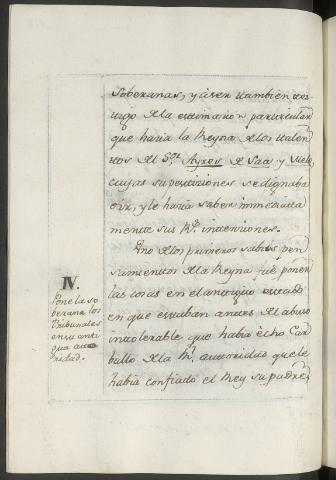 Soberanas, y à ser tambien tes-
tigo de la estimacion particular
que hacia la Reyna de los talen-
tos del Sor. Ayres de Saa, y Melo,
cuias superticiones se dignaba
oir, y le hacia saber immediata
mente sus Rs. intenciones.
Uno de los primeros sabios pen
samientos de la Reyna fue poner
las cosas en el antiguo estado
en que estaban antes del abuso
intolerable que habia echo Car
ballo de la Rl. autoridad que le
habia confiado el Rey su padre,
IV.
Pone la so
berana los
Tribunales
en su anti
gua auto
ridad.